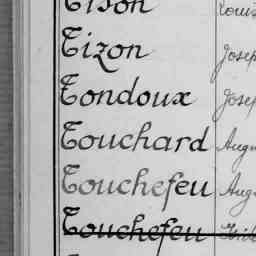 Tison Louis
Tizon Josep
Tondoux Josep
Touchard Augu
Touchefeu Augu
Touchefeu